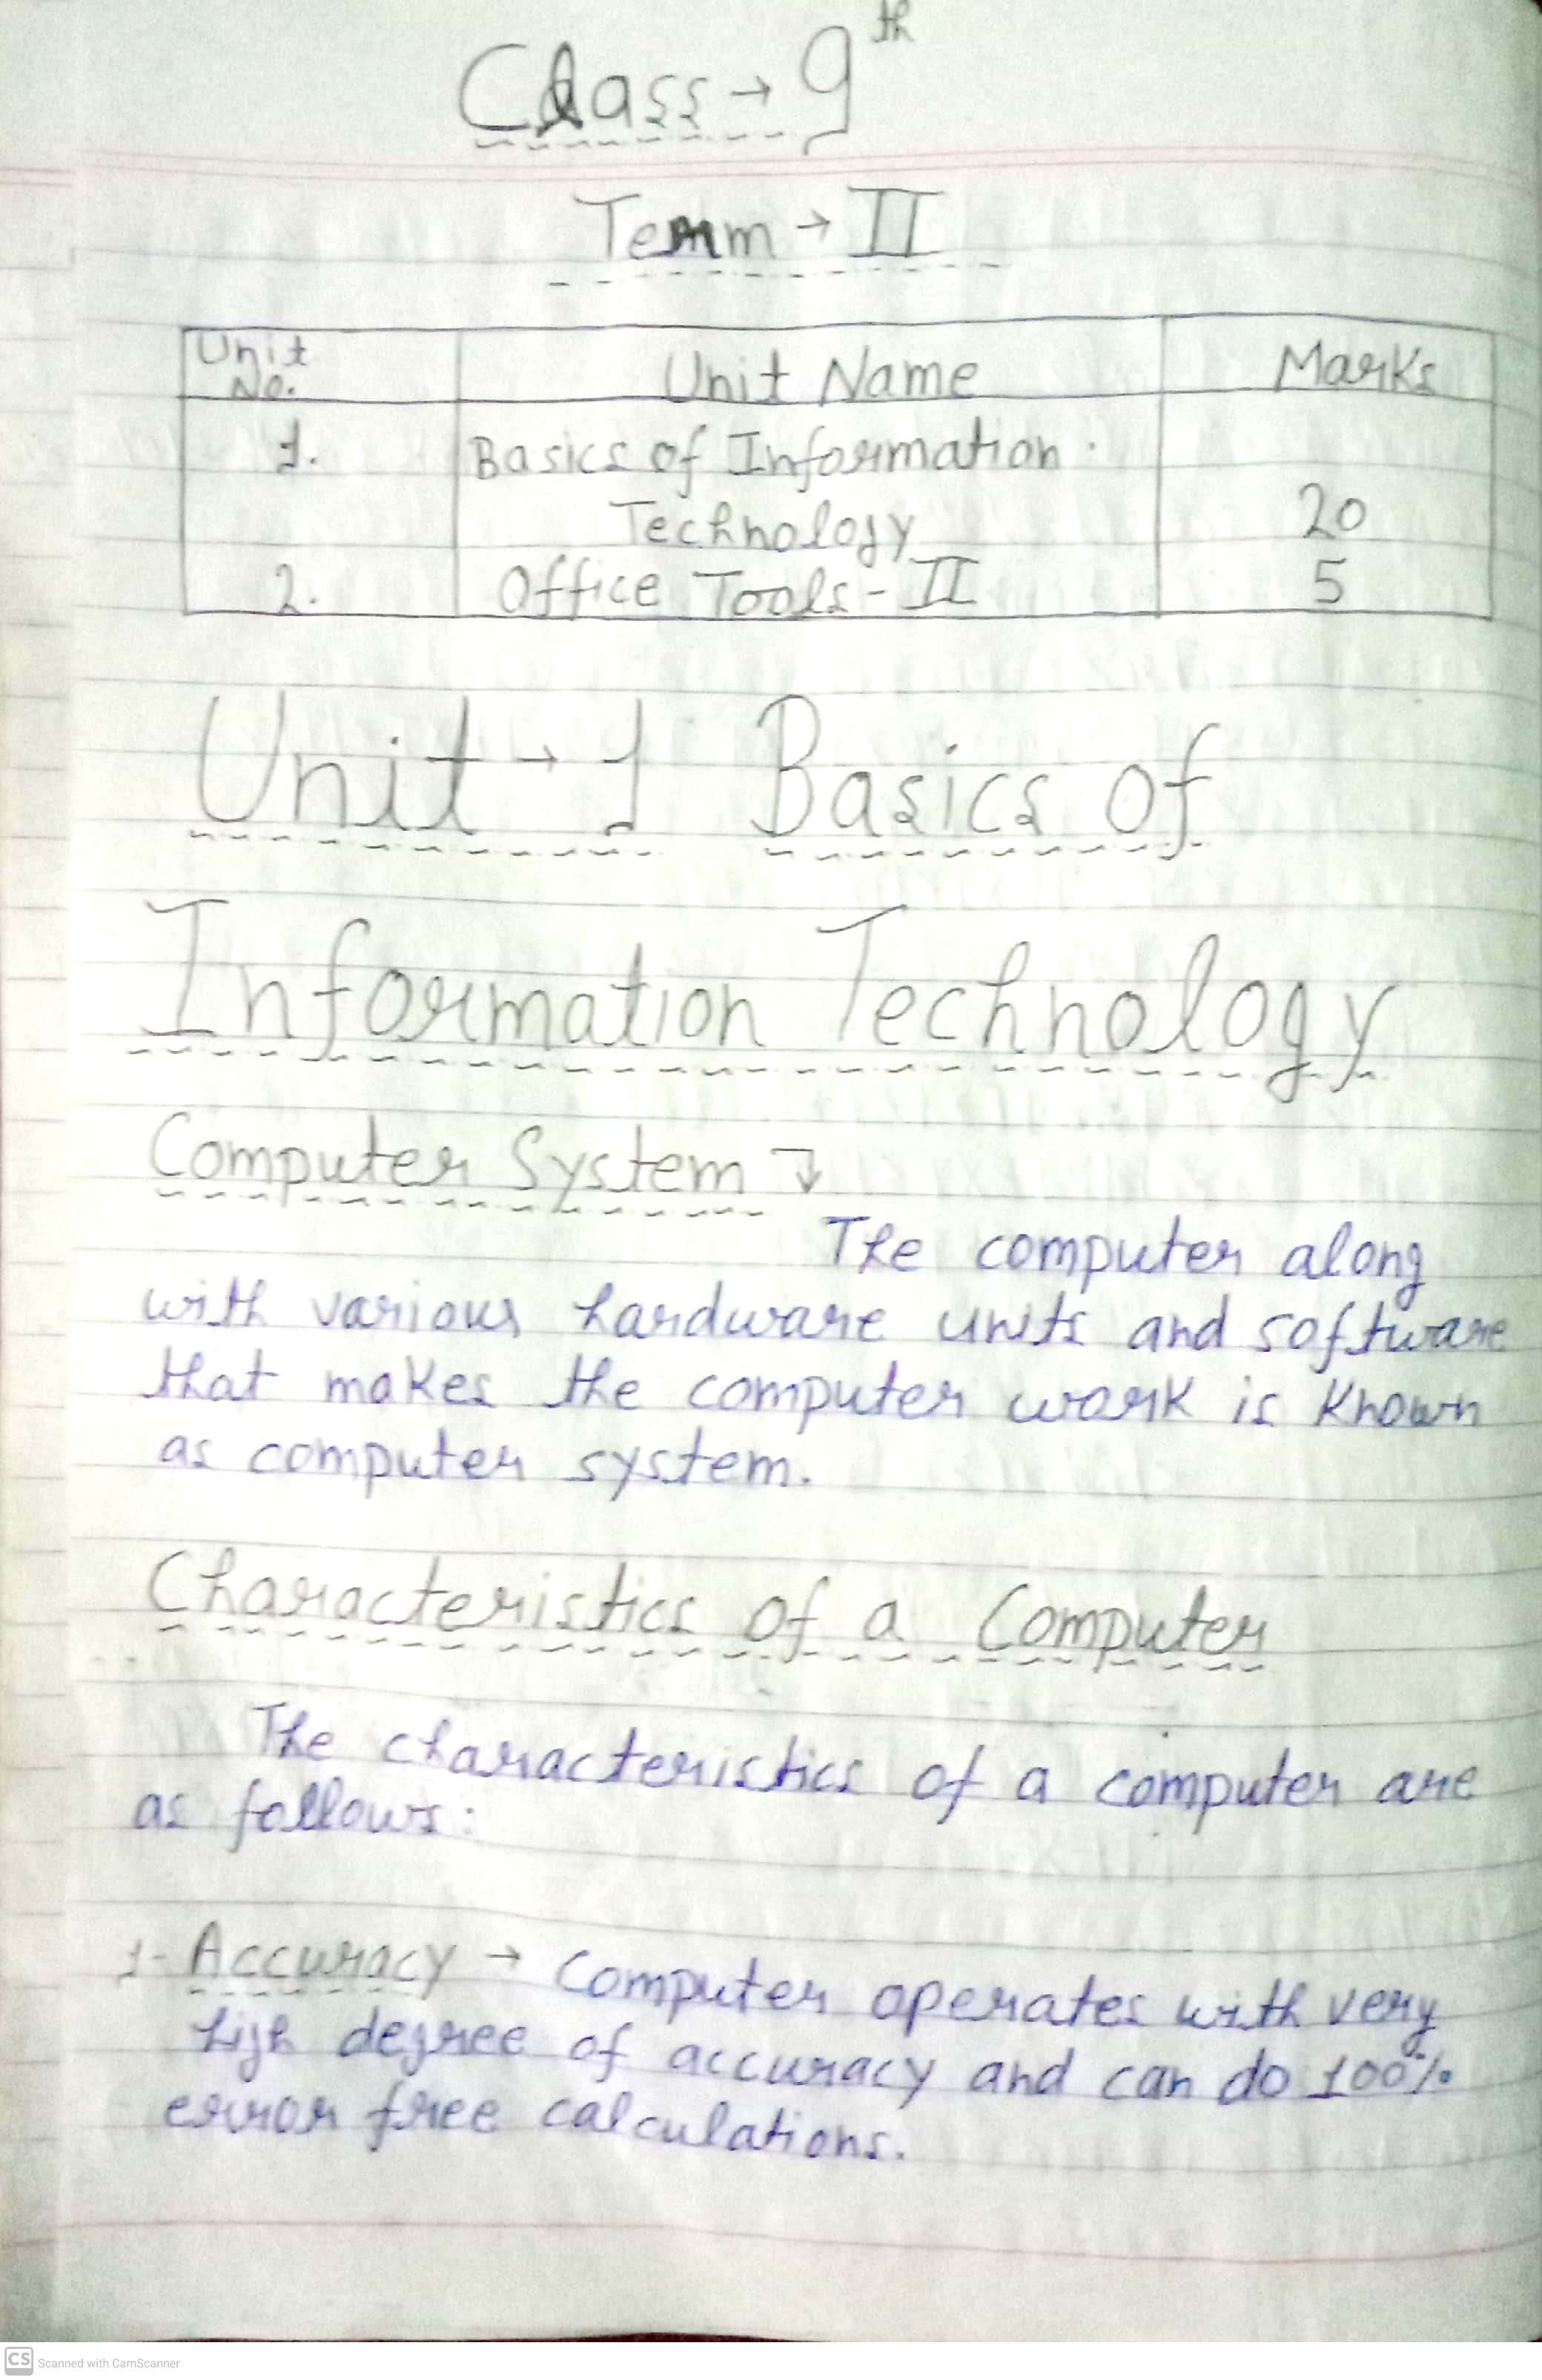 Class → 9th
Term → II
Unit No. | Unit Name | Marks
1. | Basics of Information
Technology | 20
2. | Office Tools - II | 5
Unit → 1 Basics of
Information Technology
Computer System ↴
The computer along
with various hardware units and software
that makes the computer work is known
as computer system.
Characteristics of a Computer
The characteristics of a computer are
as follows:
1- Accuracy → Computer operates with very
high degree of accuracy and can do 100%
error free calculations.
CS Scanned with CamScanner